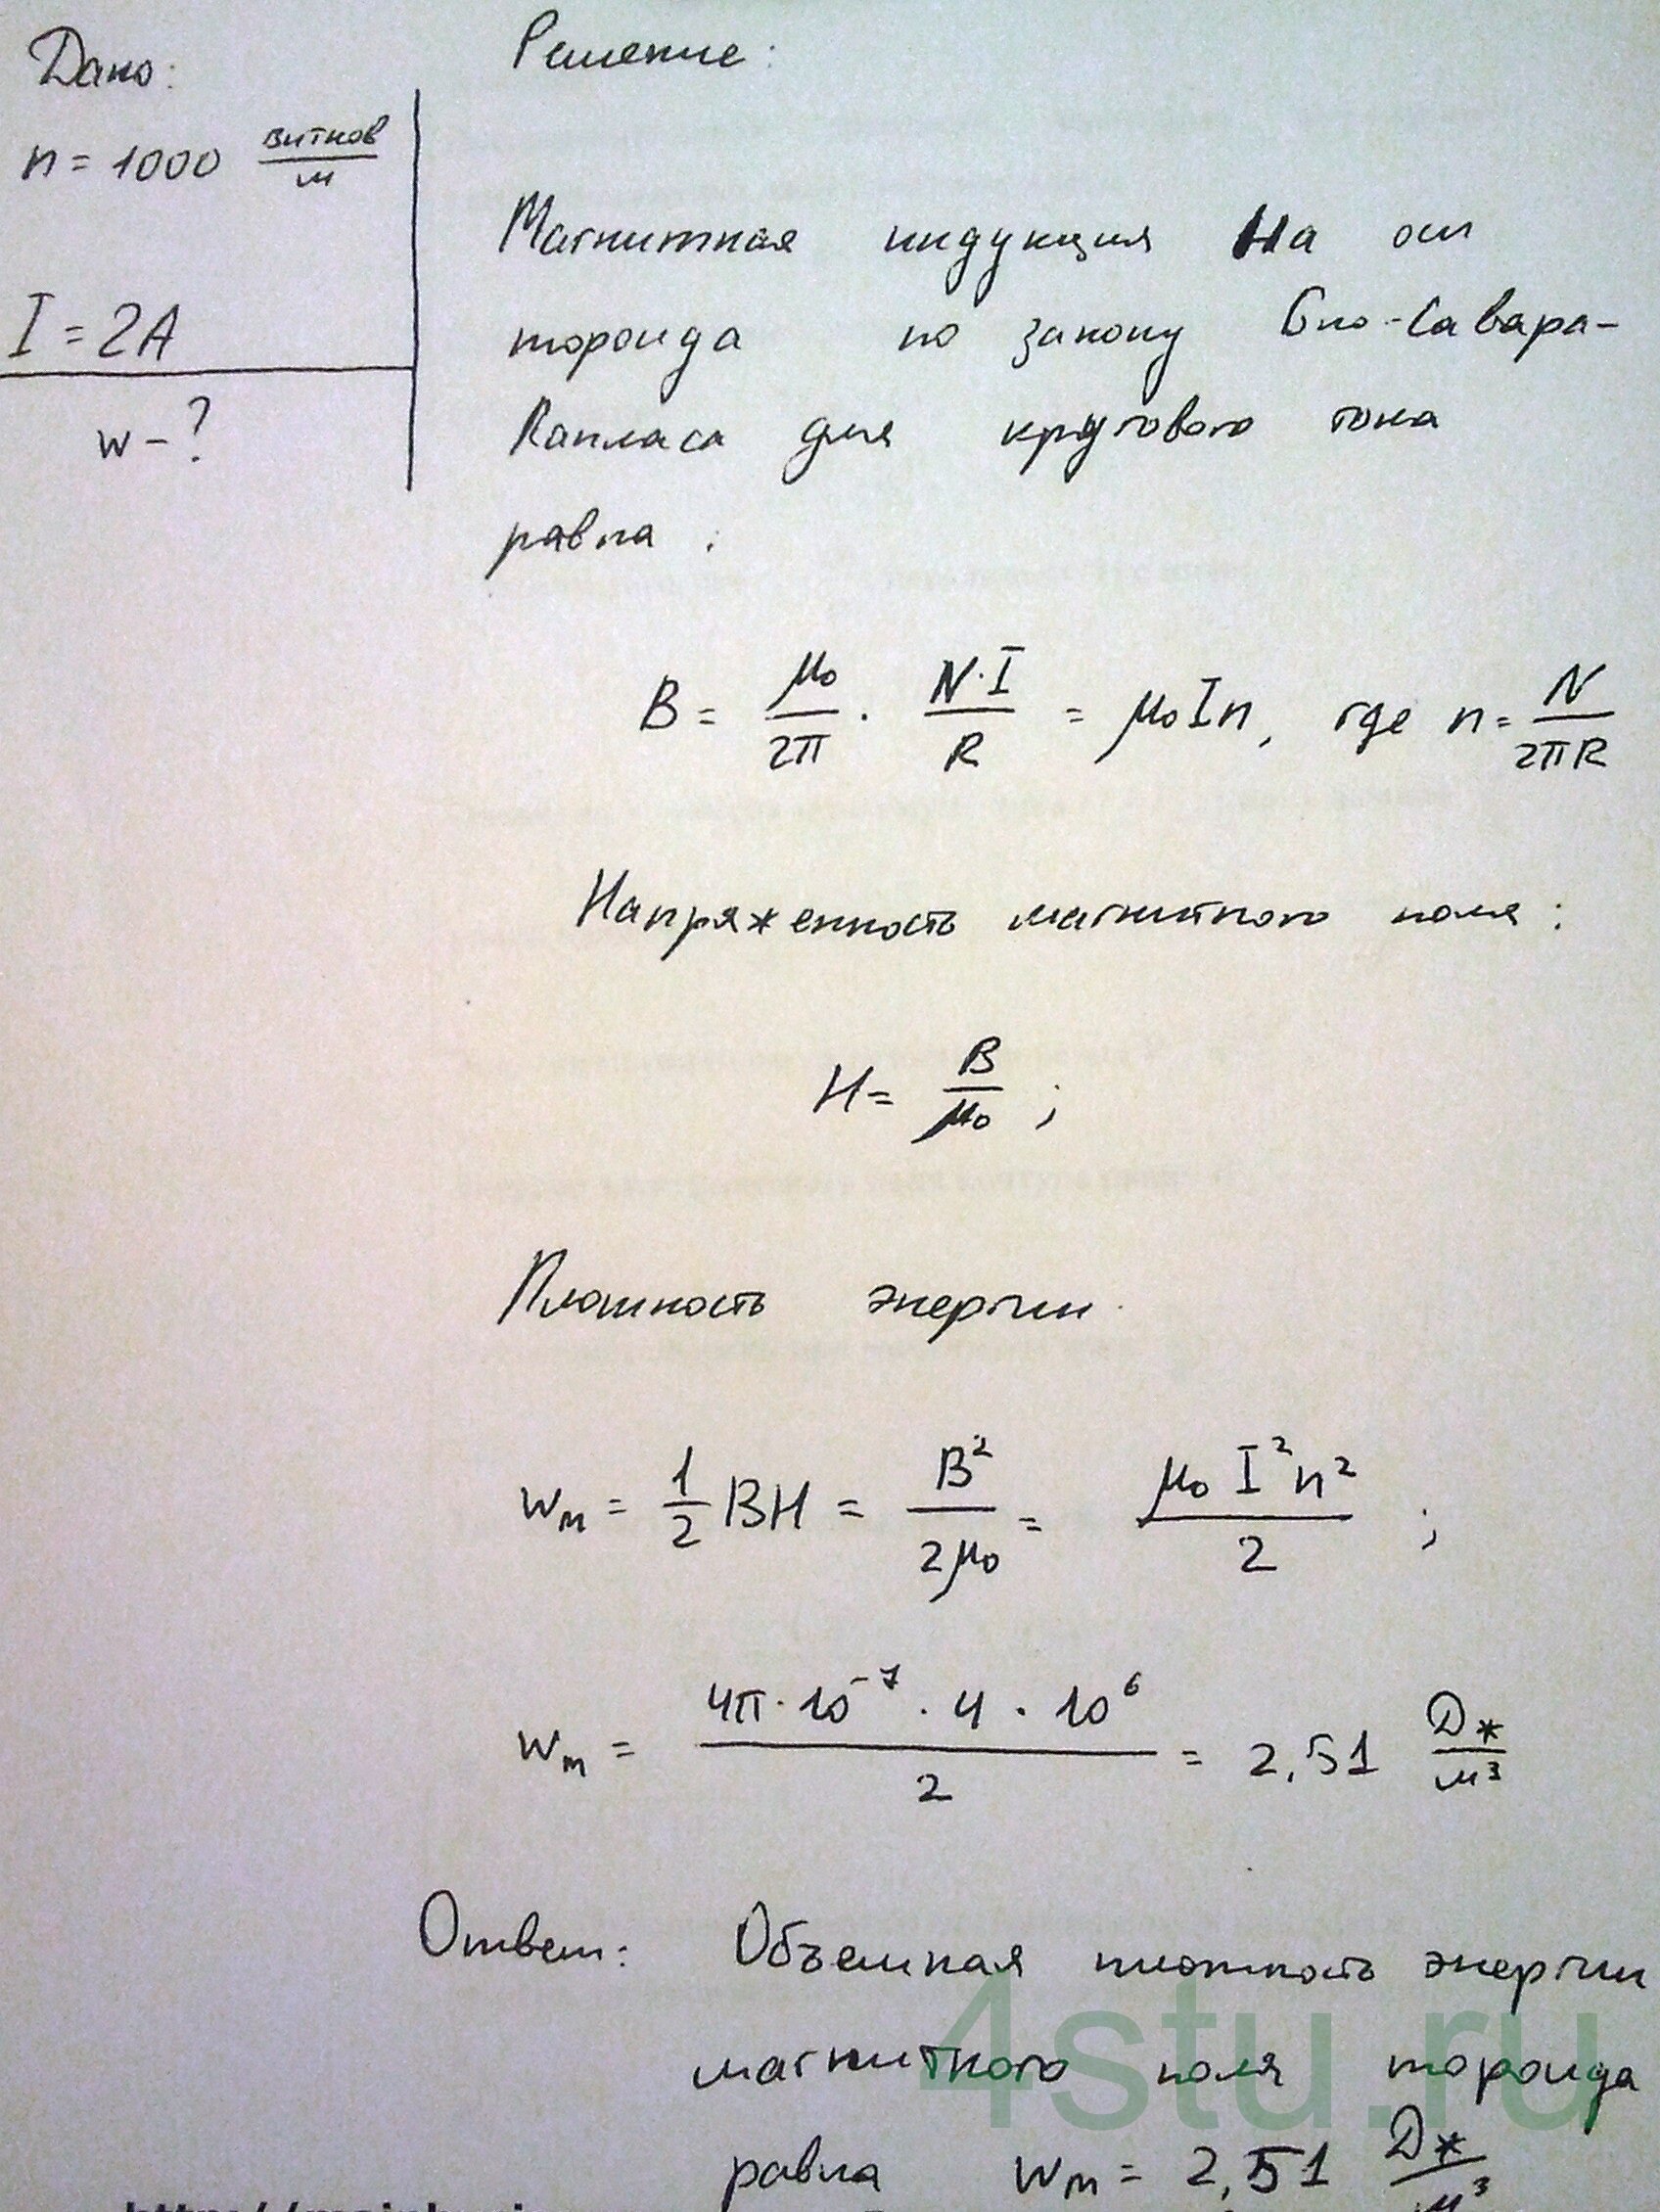 Дано:
n = 1000 витков/м
I = 2А
w - ?
Решение:
Магнитная индукция на оси
тороида по закону Био-Савара-
Лапласа для кругового тока
равна:
B = μ₀/2π · N·I/R = μ₀In, где n = N/2πR
Напряженность магнитного поля:
H = B/μ₀ ;
Плотность энергии
wₘ = 1/2 BH = B²/2μ₀ = μ₀I²n²/2 ;
wₘ = 4π·10⁻⁷ · 4 · 10⁶/2 = 2,51 Дж/м³
Ответ: Объемная плотность энергии
магнитного поля тороида
равна wₘ = 2,51 Дж/м³
4stu.ru